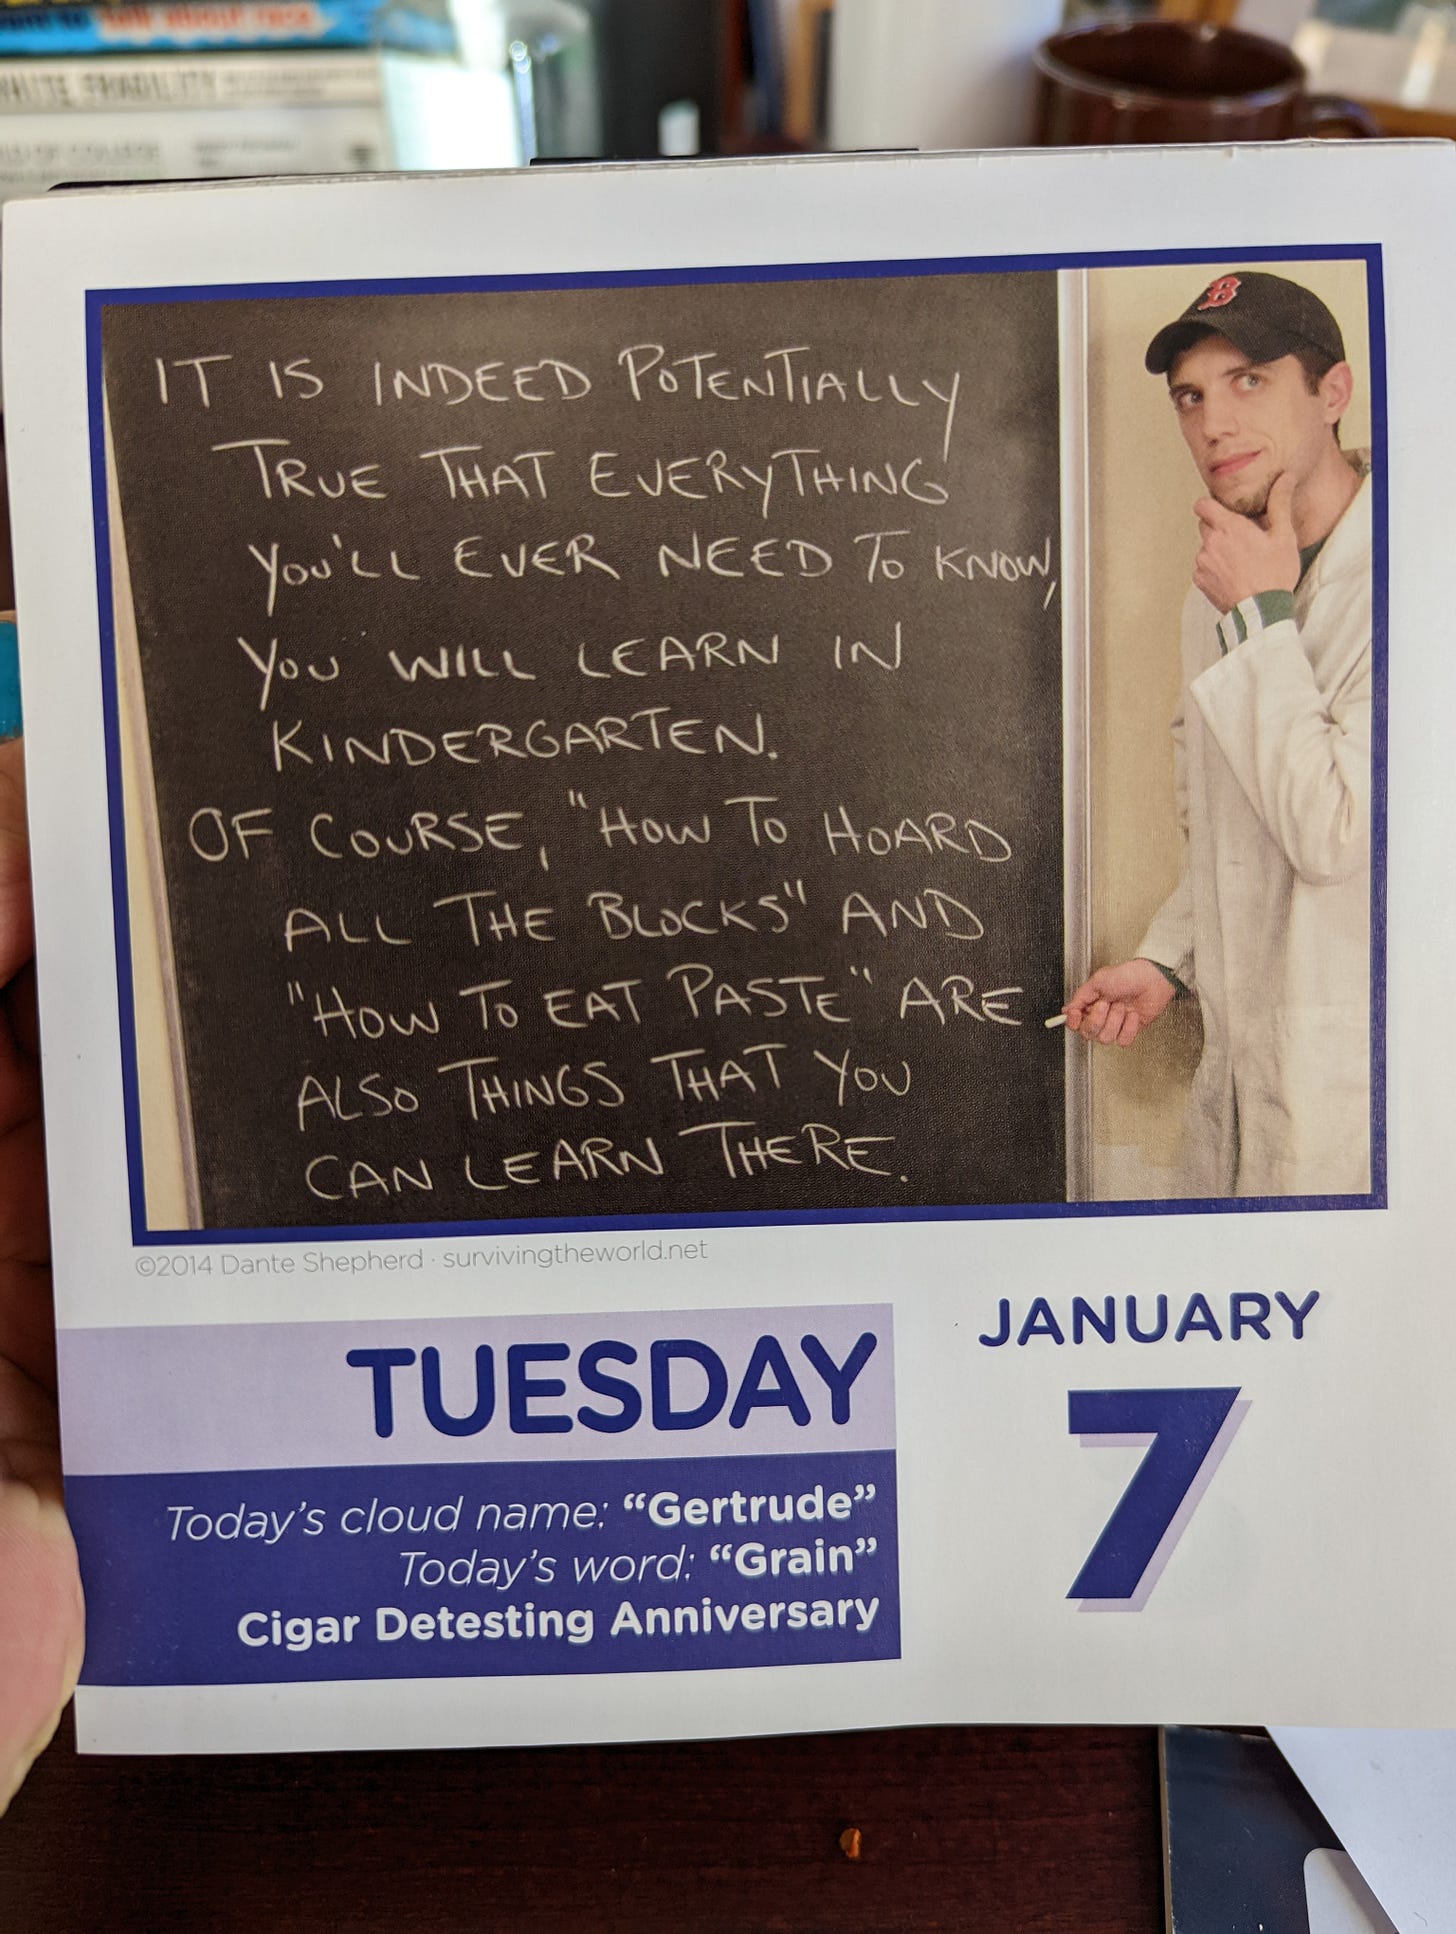 talk about race
WHITE FRAGILITY
OF COLLEGE
B
IT IS INDEED POTENTIALLY
TRUE THAT EVERYTHING
YOU'LL EVER NEED TO KNOW,
YOU WILL LEARN IN
KINDERGARTEN.
OF COURSE, "HOW TO HOARD
ALL THE BLOCKS" AND
"HOW TO EAT PASTE" ARE
ALSO THINGS THAT YOU
CAN LEARN THERE.
©2014 Dante Shepherd · survivingtheworld.net
TUESDAY
JANUARY
7
Today's cloud name: “Gertrude”
Today's word: “Grain”
Cigar Detesting Anniversary